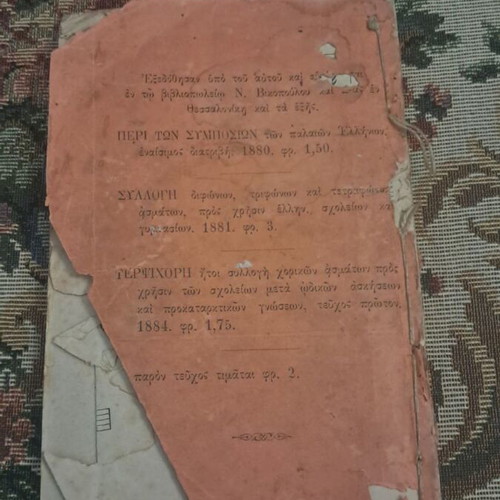 Ἐξεδόθησαν ὑπὸ τοῦ αὐτοῦ καὶ
ἐν τῷ βιβλιοπωλείῳ Ν. Βακοπούλου καὶ Σας ἐν
Θεσσαλονίκῃ καὶ τὰ ἑξῆς.
ΠΕΡΙ ΤΩΝ ΣΥΜΠΟΣΙΩΝ τῶν παλαιῶν Ἑλλήνων,
ἐναίσιμος διατριβή. 1880. φρ. 1,50.
ΣΥΛΛΟΓΗ διφώνων, τριφώνων καὶ τετραφώνων
ᾀσμάτων, πρὸς χρῆσιν ἑλλην. σχολείων καὶ
γυμνασίων. 1881. φρ. 3.
ΤΕΡΨΙΧΟΡΗ ἤτοι συλλογὴ χορικῶν ᾀσμάτων πρὸς
χρῆσιν τῶν σχολείων μετὰ ᾠδικῶν ἀσκήσεων
καὶ προκαταρκτικῶν γνώσεων, τεῦχος πρῶτον,
1884. φρ. 1,75.
παρὸν τεῦχος τιμᾶται φρ. 2.